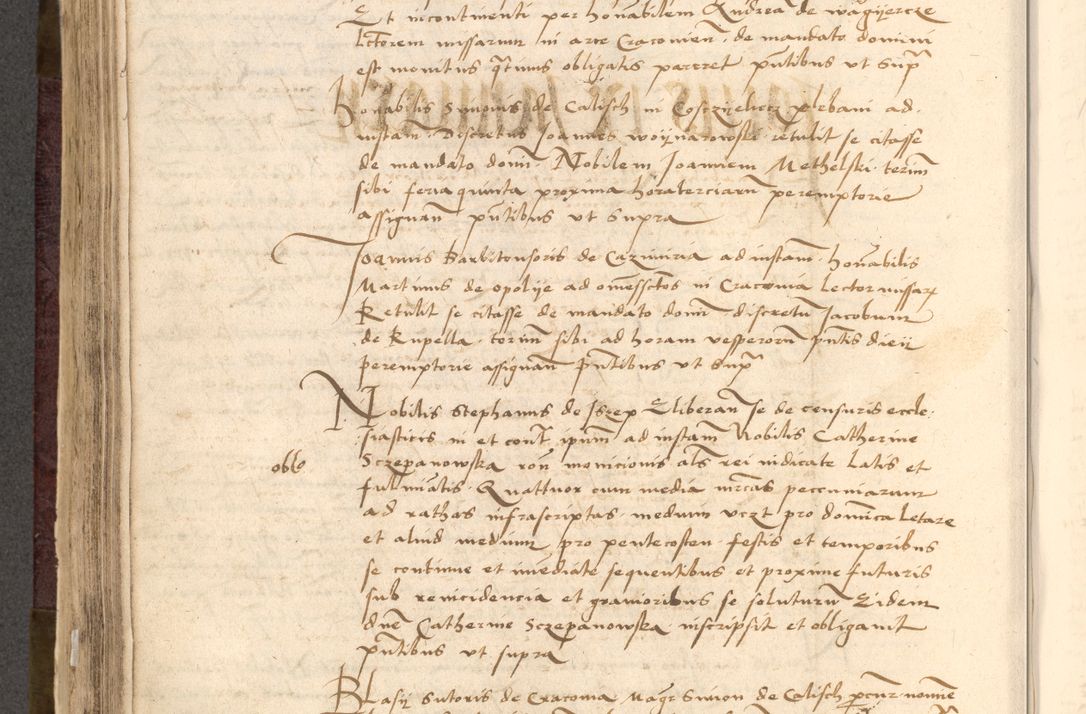 Et incontinenti per honabilem Andrea de wagÿercze
lectorem missarum in arce Cracovien de mandato domini
est monitus qtinus obligatis pareret pntibus ut sup
Honabilis Simonis de Calisch in Cosczyelecz plebani ad
instam Discretus Joannes woÿnarowski retulit se citasse
de mandato domi Nobilem Joannem Methelski termi
sibi feria quinta proxima hora terciarum peremptorie
assignan pntibus ut supra
Joannis Barbitonsoris de Cazimiria ad instam honabilis
Martinus de opolÿe ad omessctos in Cracovia Lector missar
Retulit se citasse de mandato domi discretu Jacobum
de Rupella termi sibi ad horam vesperorum pntis dieÿ
peremptorie assignan pntibus ut sup
Nobilis Stephanus de Iszep Eliberan se de censuris eccle
siasticis in et cont ipum ad instam Nobilis Catherine
obb Sczepanowska ron monicionis als rei iudicate Latis et
fulminatis Quattuor cum media mrcas pecuniarum
ad rathas infrascriptas medium vczt pro dominica Letare
et aliud medium pro pentecosten festis et temporibus
se continue et imediate sequentibus et proxime futuris
sub reincidencia et gravioribus se soluturu Eidem
dne Catherine Sczepanowska inscripsit et obligavit
pntibus ut supra
Blasÿ Sutoris de Cracovia Magr Simon de Calisch pcur nomine